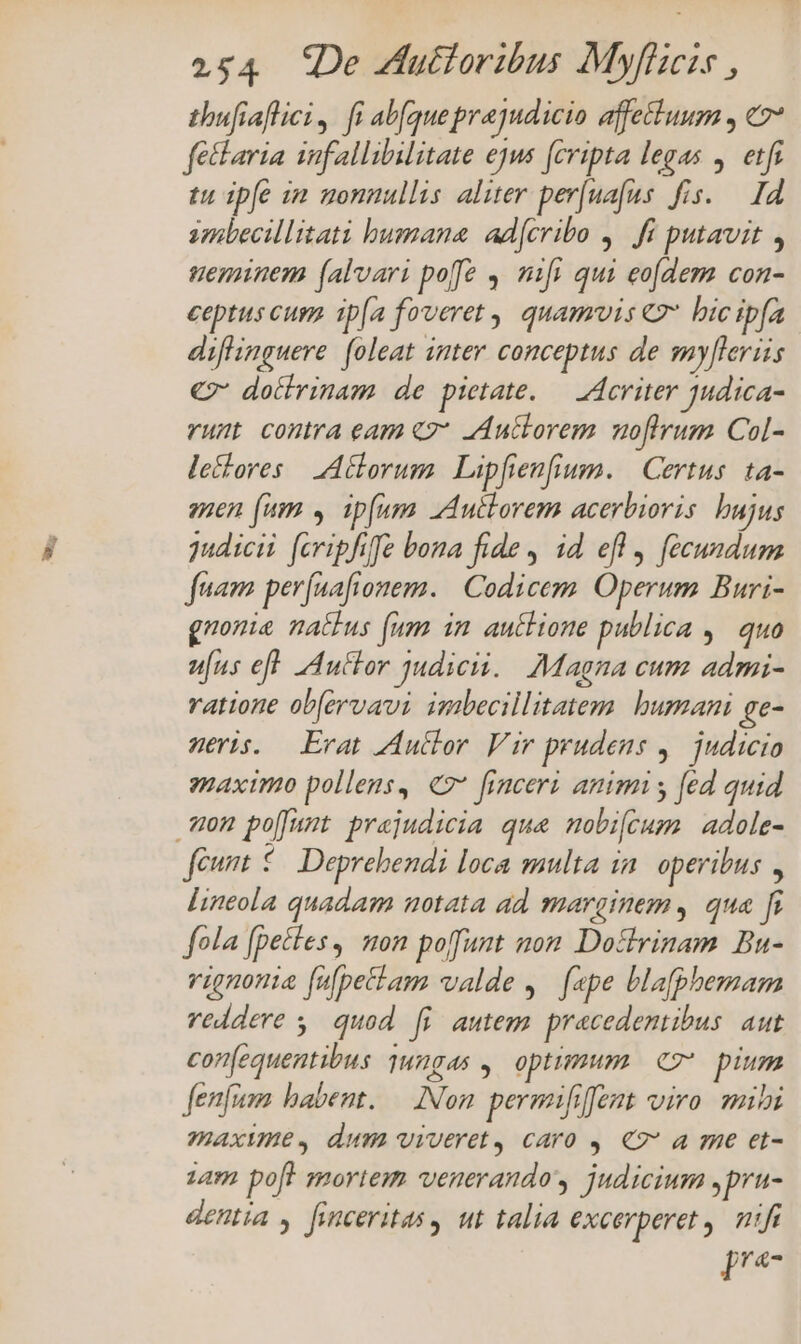 254 De Auctoribus Mysticis,
thusiastici, si absque præjudicio affectuum, &
sectaria infallibilitate ejus scripta legas, etsi
tu ipse in nonnullis aliter persuasus sis. Id
imbecillitati humanæ adscribo, si putavit,
neminem salvari posse, nisi qui eosdem con-
ceptus cum ipsa foveret, quamvis & hic ipsa
distinguere soleat inter conceptus de mysteriis
& doctrinam de pietate. Acriter judica-
runt contra eam & Auctorem nostrum Col-
lectores Actorum Lipsiensium. Certus ta-
men sum, ipsum Auctorem acerbioris hujus
judicii scripsisse bona fide, id est, secundum
suam persuasionem. Codicem Operum Buri-
gnoniæ nactus sum in auctione publica, quo
usus est Auctor judicii. Magna cum admi-
ratione observavi imbecillitatem humani ge-
neris. Erat Auctor Vir prudens, judicio
maximo pollens, & sinceri animi; sed quid
non possunt præjudicia quæ nobiscum adole-
scunt? Deprehendi loca multa in operibus,
lineola quadam notata ad marginem, quæ si
sola spectes, non possunt non Doctrinam Bu-
rignoniæ suspectam valde, sæpe blasphemam
reddere; quod si autem præcedentibus aut
consequentibus jungas, optimum & pium
sensum habent. Non permisissent viro mihi
maxime, dum viveret, caro, & a me et-
iam post mortem venerando, judicium, pru-
dentia, sinceritas, ut talia excerperet, nisi
præ-